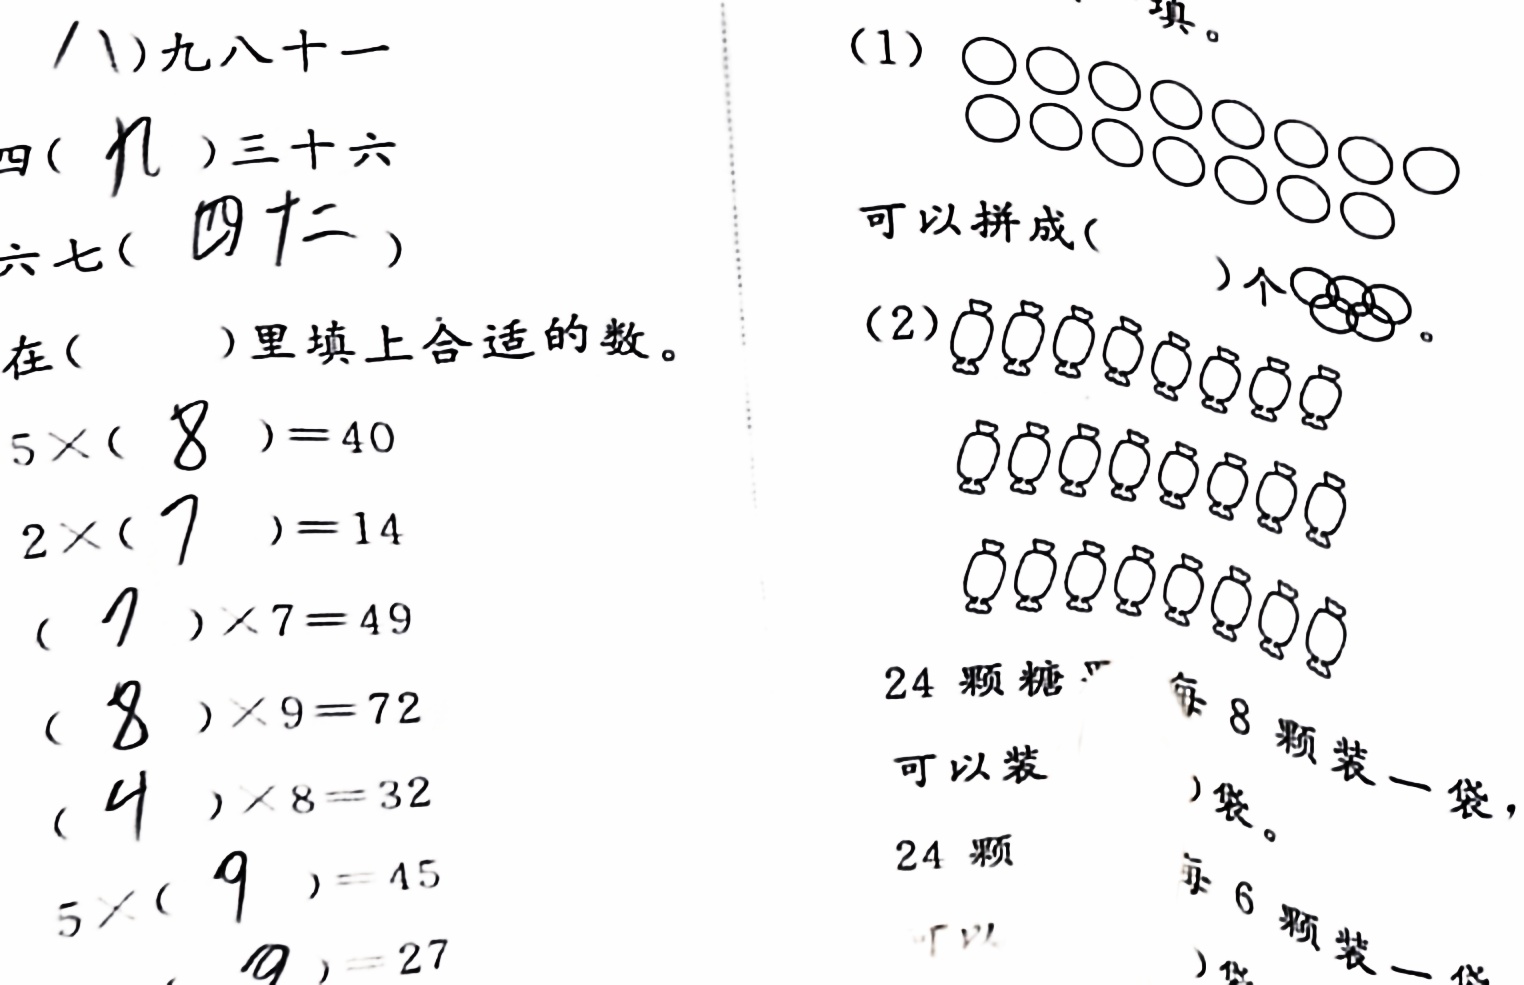 )九八十一
四(九)三十六
六七(四十二)
在( )里填上合适的数。
5×(8)=40
2×(7)=14
(7)×7=49
(8)×9=72
(4)×8=32
5×(9)=45
(9)=27
填。
(1)
可以拼成( )个 。
(2)
24 颗糖 每 8 颗装一袋,
可以装 )袋。
24 颗 每 6 颗装一袋
可以 )袋